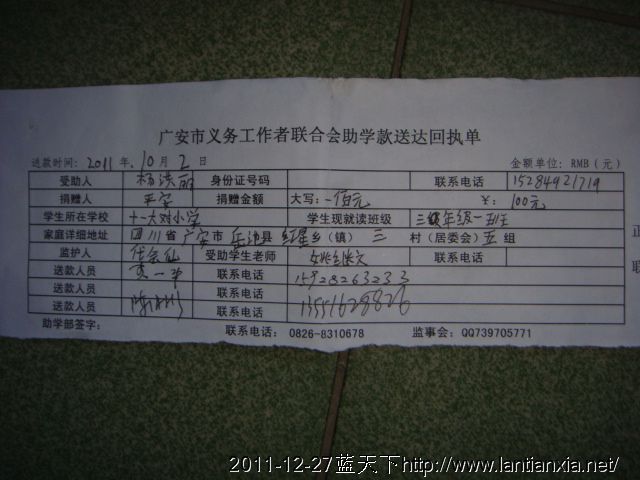 广安市义务工作者联合会助学款送达回执单
送款时间: 2011 年 10 月 2 日 金额单位: RMB (元)
受助人 杨洪丽 身份证号码 联系电话 15284921719
捐赠人 平安 捐赠金额 大写: 一佰元 ¥: 100元
学生所在学校 小学 学生现就读班级 三年级一班
家庭详细地址 四川省广安市岳池县红星乡(镇) 三 村(居委会) 五 组
监护人 受助学生老师 联系电话
送款人员 黄一平 联系电话 15928263233
送款人员 联系电话 13551628826
送款人员 联系电话
助学部签字: 联系电话: 0826-8310678 监事会: QQ739705771
正
联
2011-12-27蓝天下http://www.lantianxia.net/